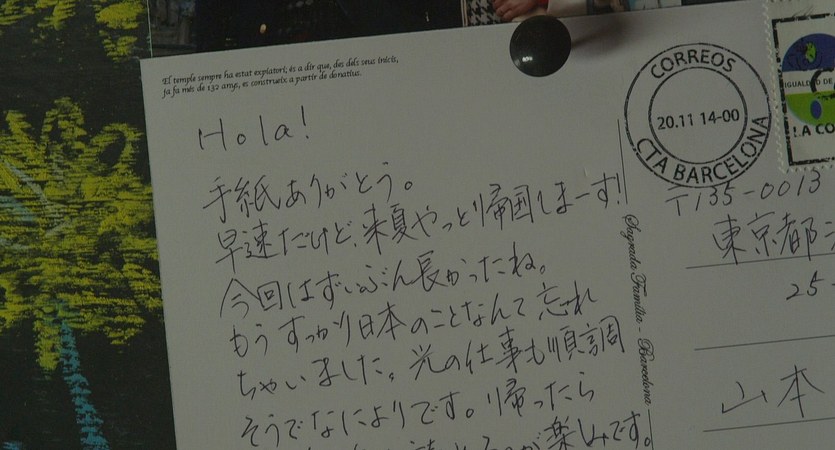 El temple sempre ha estat expiatori; és a dir que, des dels seus inicis,
ja fa més de 132 anys, es construeix a partir de donatius.
Hola!
手紙ありがとう。
早速だけど、来夏やっとり帰国しまーす!!
今回はずいぶん長かったね。
もうすっかり日本のことなんて忘れ
ちゃいました。光の仕事も順調
そうでなによりです。帰ったら
が楽しみです。
Sagrada Família - Barcelona
CORREOS
20.11 14-00
CTA BARCELONA
IGUALDAD DE
¡LA CO
〒135-0013
東京都
25-
山本